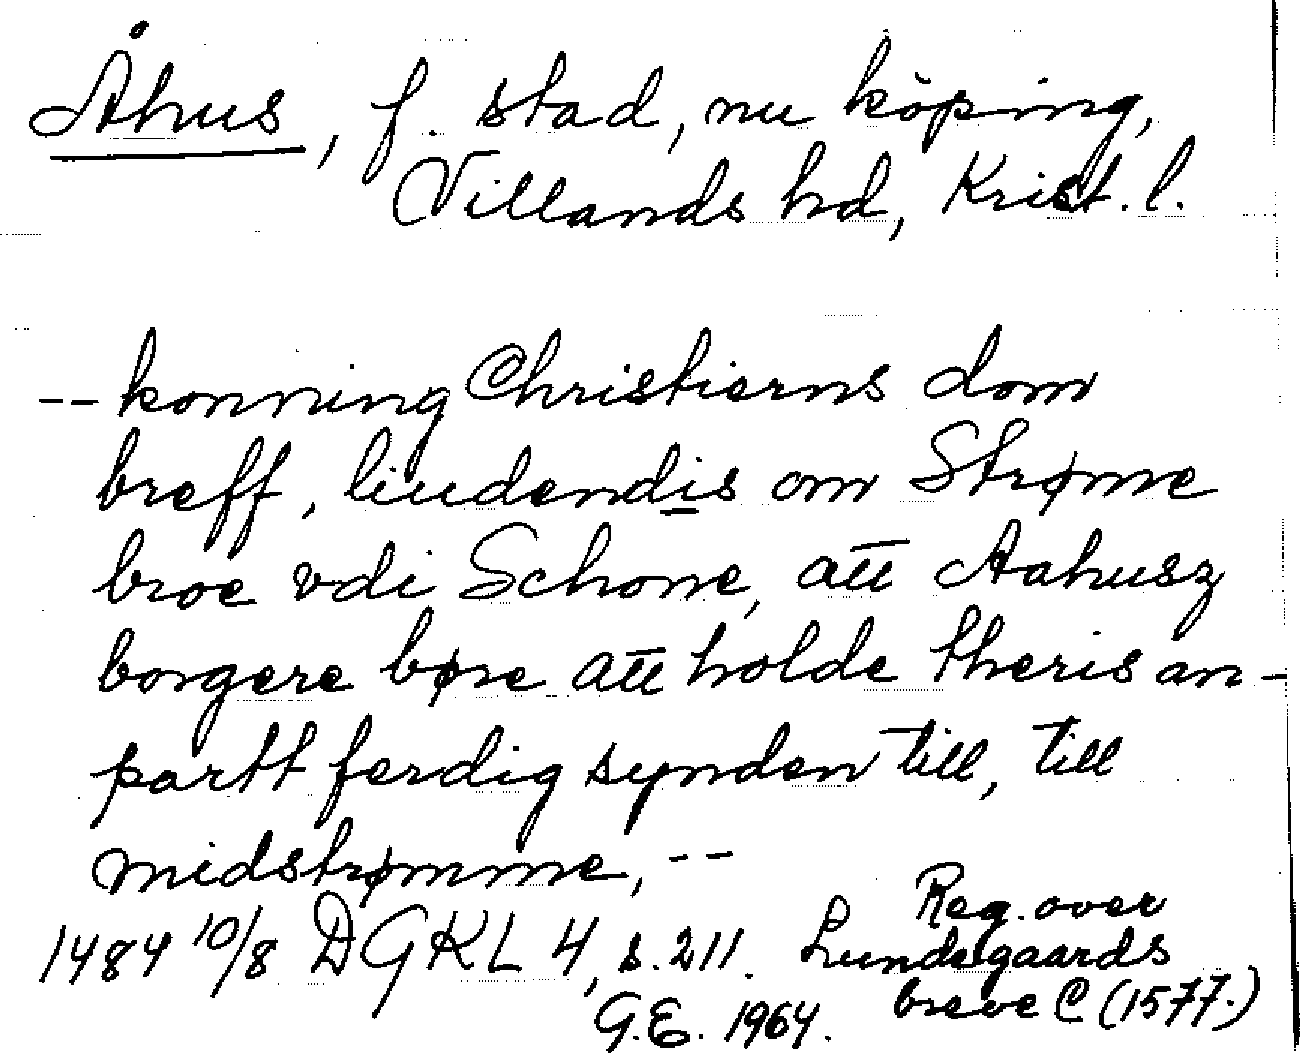 Åhus, f. stad, nu köping,
Villands hd, Krist. l.
-- konning Christierns dom
breff, liudendis om Strøme
broe vdi Schone, att Aahusz
borgere børe att holde theris an-
partt ferdig synden till, till
midstrømme, --
1484 10/8 DGKL 4, s. 211. Reg. over
Lundegaards
breve C (1577.)
G.E. 1964.